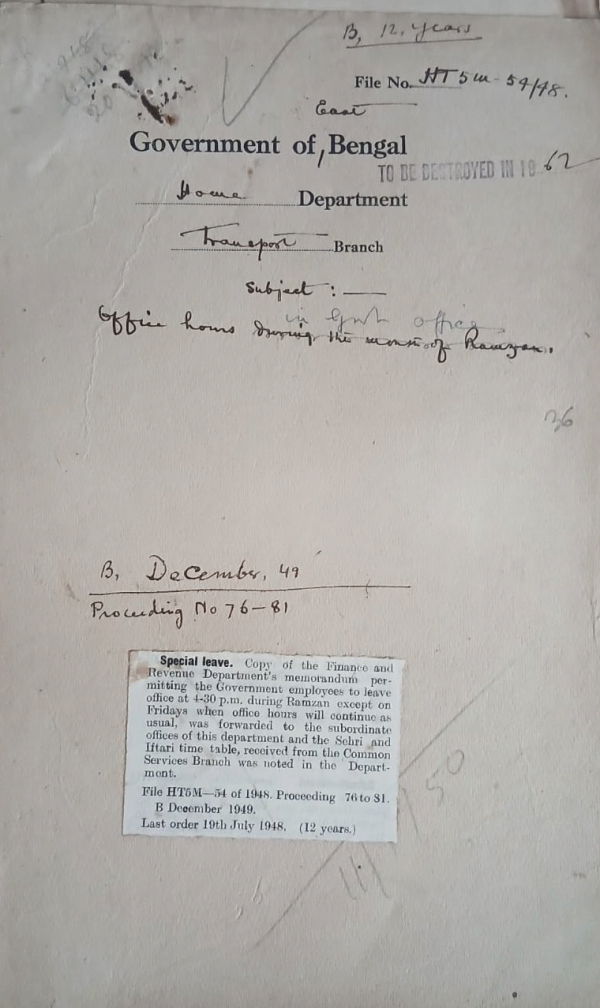 B, 12, years
File No. HT 5M - 54/48.
East
Government of, Bengal
TO BE DESTROYED IN 19 62
Home Department
Transport Branch
Subject : —
in Govt. offices
Office hours during the month of Ramzan.
36
B, December, 49
Proceeding No 76-81
Special leave. Copy of the Finance and
Revenue Department's memorandum per-
mitting the Government employees to leave
office at 4-30 p.m. during Ramzan except on
Fridays when office hours will continue as
usual, was forwarded to the subordinate
offices of this department and the Sehri and
Iftari time table, received from the Common
Services Branch was noted in the Depart-
ment.
File HT5M—54 of 1948. Proceeding 76 to 81.
B December 1949.
Last order 19th July 1948. (12 years.)